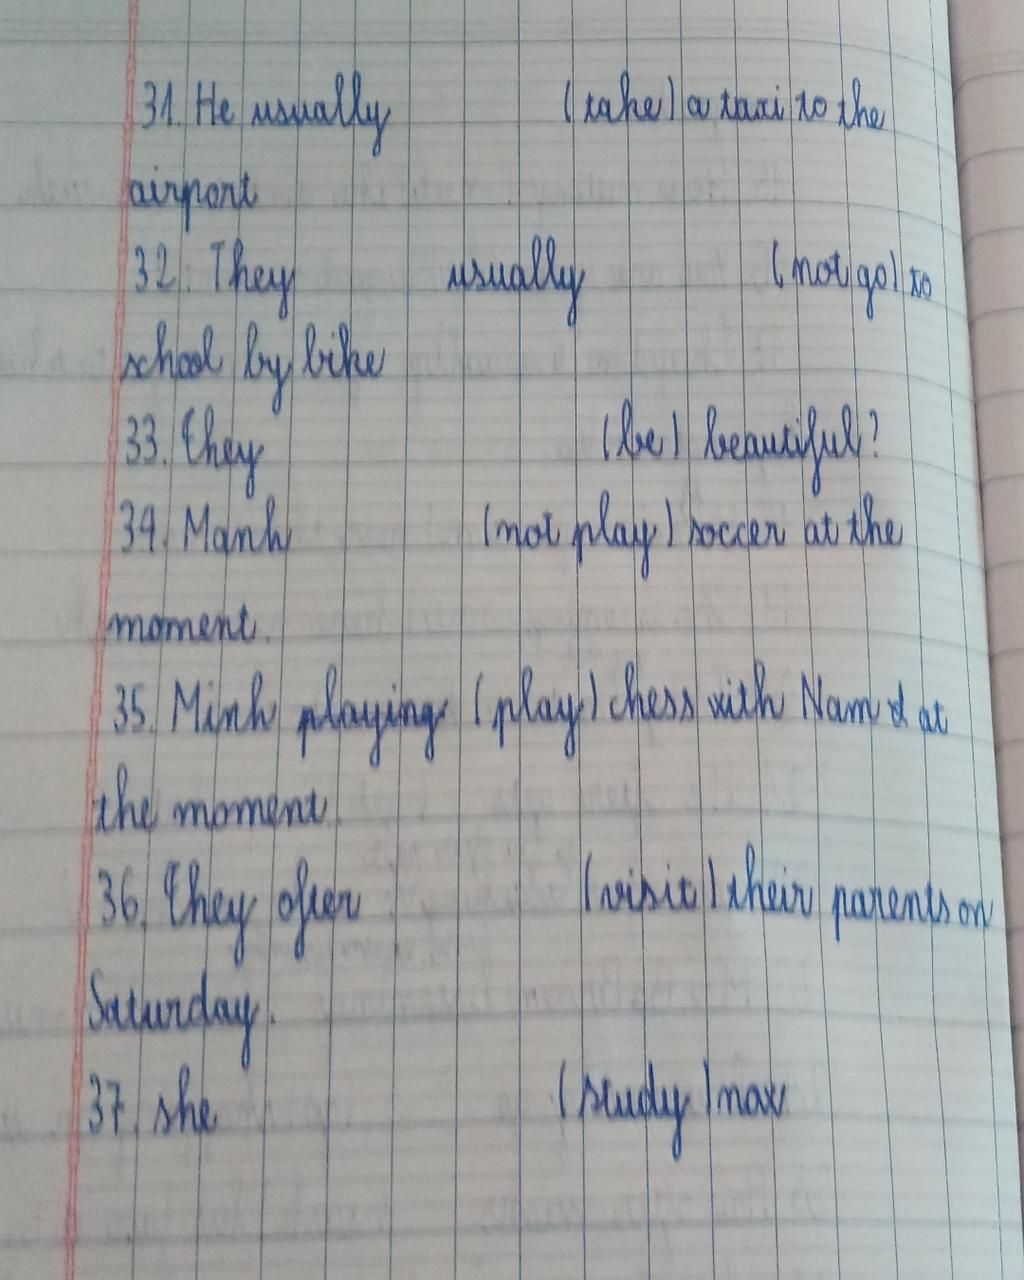 31. He usually (take) a taxi to the
airport
32. They usually (not go) to
school by bike
33. They (be) beautiful?
34. Manh (not play) soccer at the
moment.
35. Minh playing (play) chess with Nam at
the moment
36. They often (visit) their parents on
Saturday.
37. she (study) now